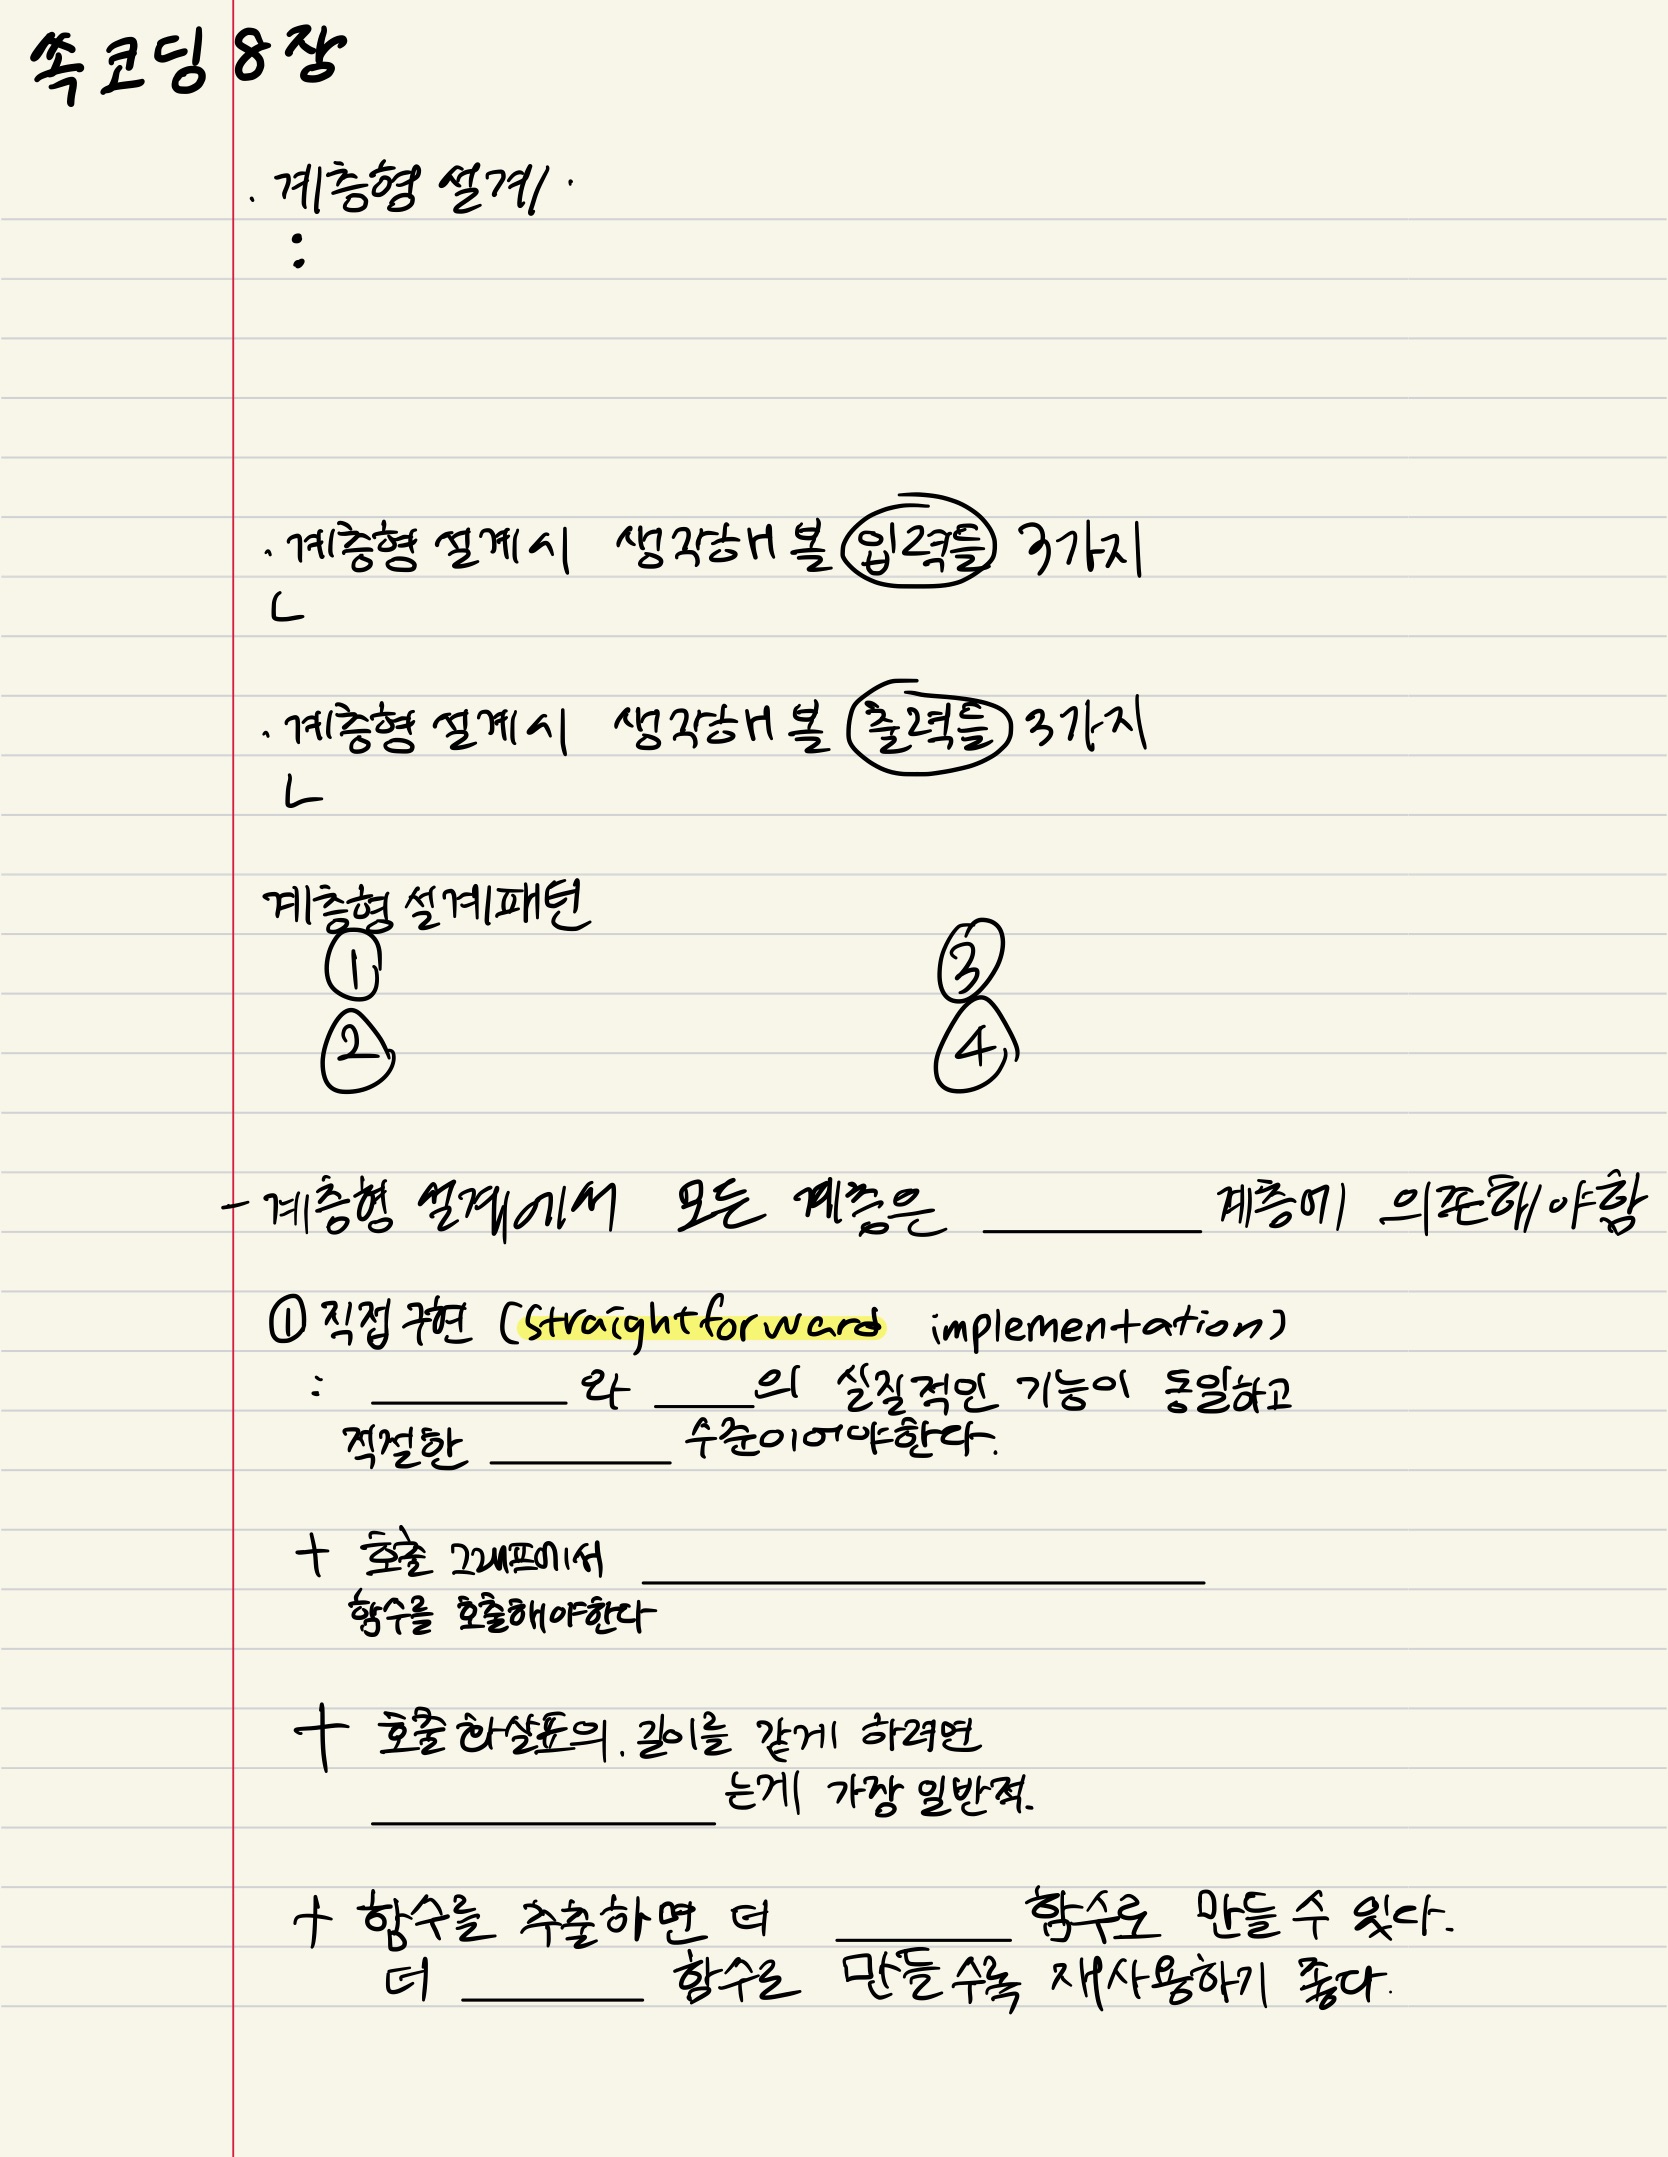 쏙코딩 8장
· 계층형 설계 ·
:
· 계층형 설계시 생각해 볼 입력들 3가지
ㄴ
· 계층형 설계시 생각해 볼 출력들 3가지
ㄴ
계층형 설계패턴
① ③
② ④
- 계층형 설계에서 모든 계층은 ________ 계층에 의존해야함
① 직접 구현 (straightforward implementation)
: ________ 와 ____의 실질적인 기능이 동일하고
적절한 ________ 수준이어야한다.
+ 호출 그래프에서 ________
함수를 호출해야한다
+ 호출 화살표의. 길이를 같게 하려면
________ 는게 가장 일반적.
+ 함수를 추출하면 더 ________ 함수로 만들 수 있다.
더 ________ 함수로 만들 수록 재사용하기 좋다.